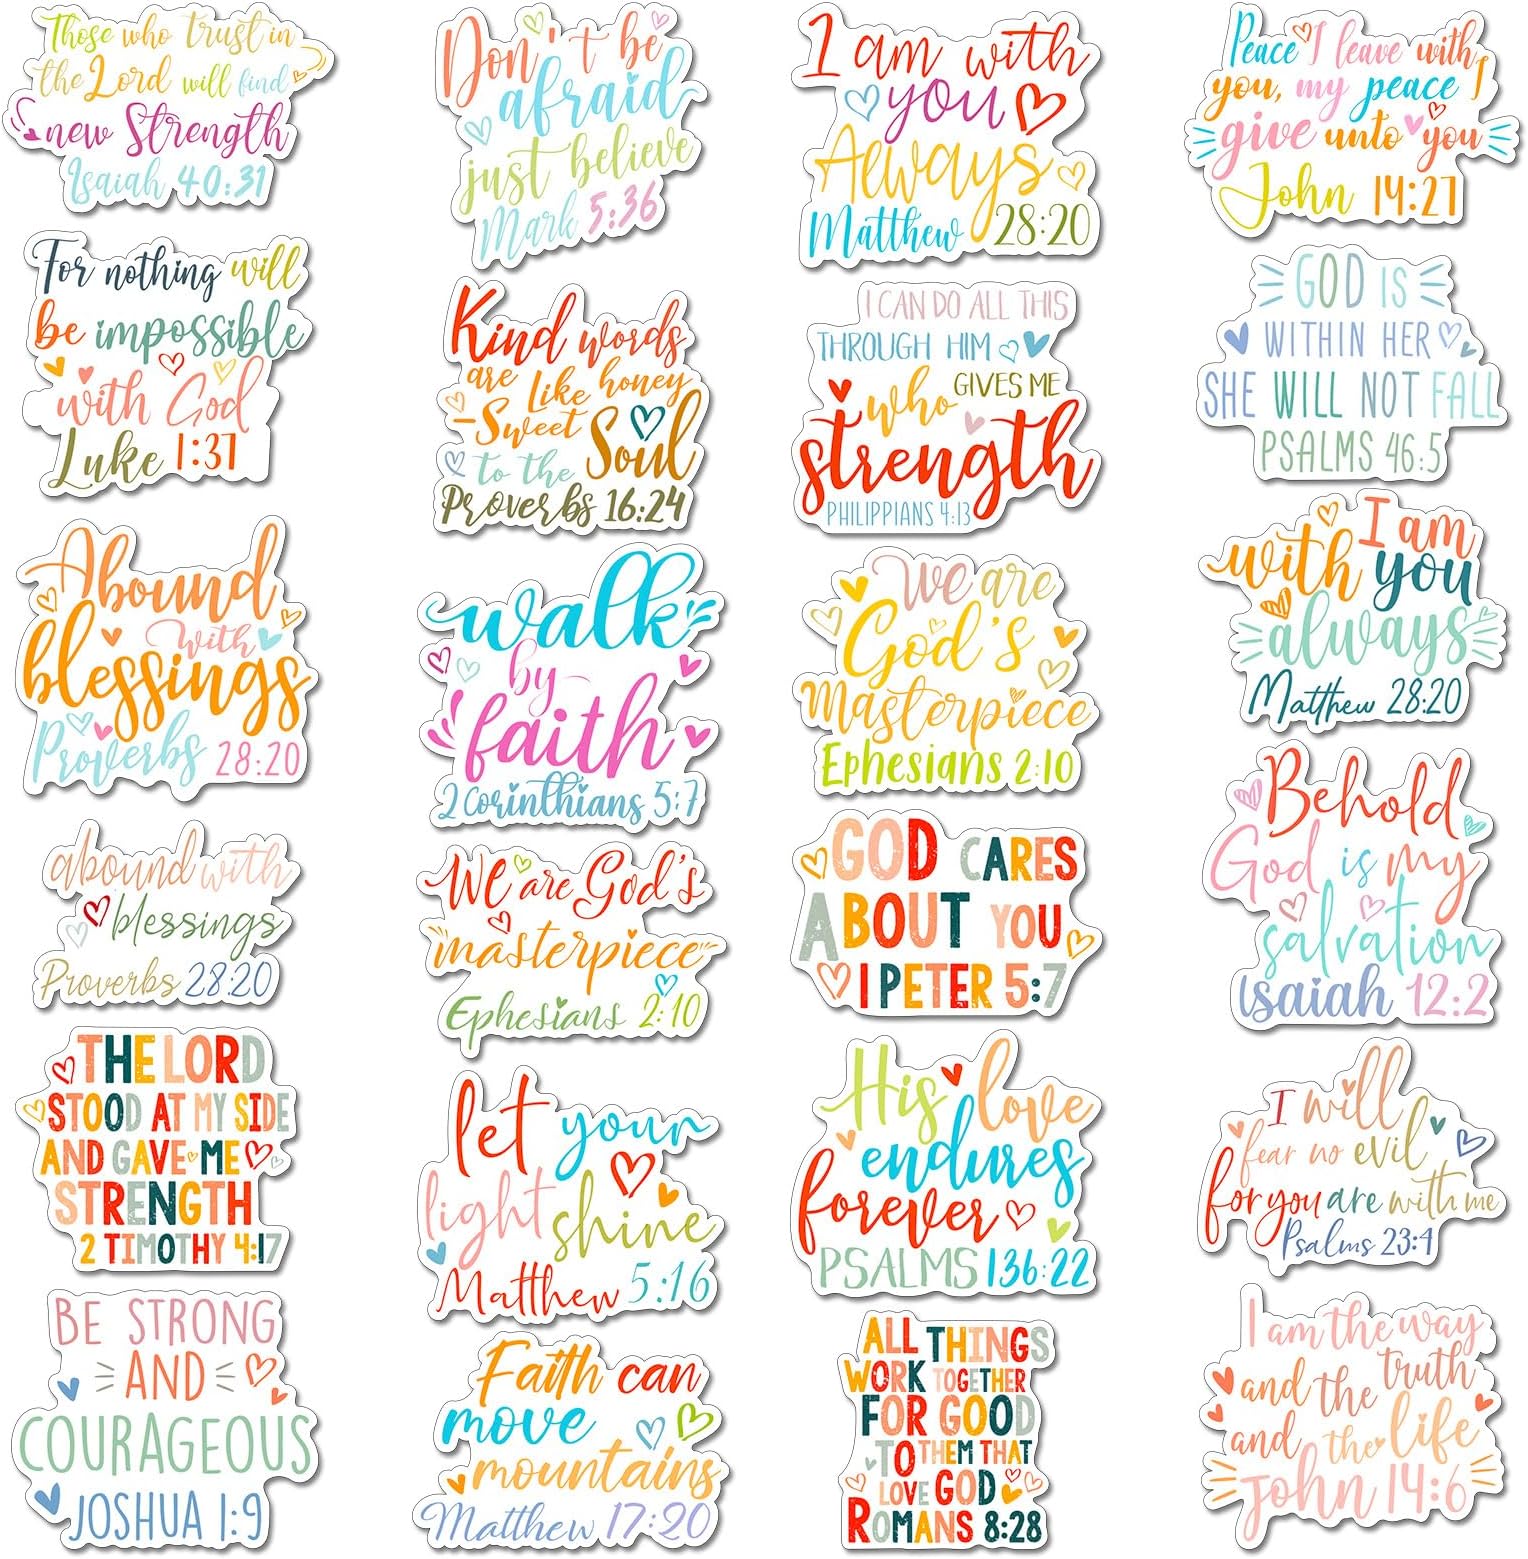 Those who trust in
the Lord will find
new Strength
Isaiah 40:31
For nothing will
be impossible
with God
Luke 1:37
Abound
with
blessings
Proverbs 28:20
abound with
blessings
Proverbs 28:20
THE LORD
STOOD AT MY SIDE
AND GAVE ME
STRENGTH
2 TIMOTHY 4:17
BE STRONG
AND
COURAGEOUS
JOSHUA 1:9
Don't be
afraid
just believe
Mark 5:36
Kind words
are Like honey
-Sweet Soul
to the
Proverbs 16:24
walk
by
faith
2 Corinthians 5:7
We are God's
masterpiece
Ephesians 2:10
let your
light shine
Matthew 5:16
Faith can
move
mountains
Matthew 17:20
I am with
you
Always
Matthew 28:20
I CAN DO ALL THIS
THROUGH HIM
who GIVES ME
strength
PHILIPPIANS 4:13
We are
God's
Masterpiece
Ephesians 2:10
GOD CARES
ABOUT YOU
1 PETER 5:7
His love
endures
forever
PSALMS 136:22
ALL THINGS
WORK TOGETHER
FOR GOOD
TO THEM THAT
LOVE GOD
ROMANS 8:28
Peace I leave with
you, my peace I
give unto you
John 14:27
GOD IS
WITHIN HER
SHE WILL NOT FALL
PSALMS 46:5
I am
with you
always
Matthew 28:20
Behold
God is my
salvation
Isaiah 12:2
I will
fear no evil
for you are with me
Psalms 23:4
I am the way
and the truth
and the life
John 14:6